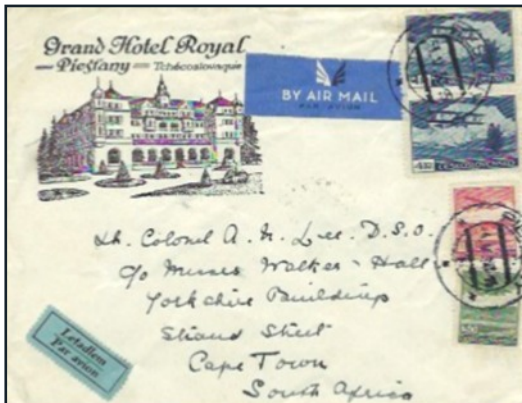 Grand Hotel Royal
Piešťany Tchécoslovaquie
BY AIR MAIL
PAR AVION
Lt. Colonel A. N. Lee. D.S.O.
c/o Messrs Walker & Hall
Yorkshire Buildings
Strand Street
Cape Town
South Africa
Letadlem
Par avion